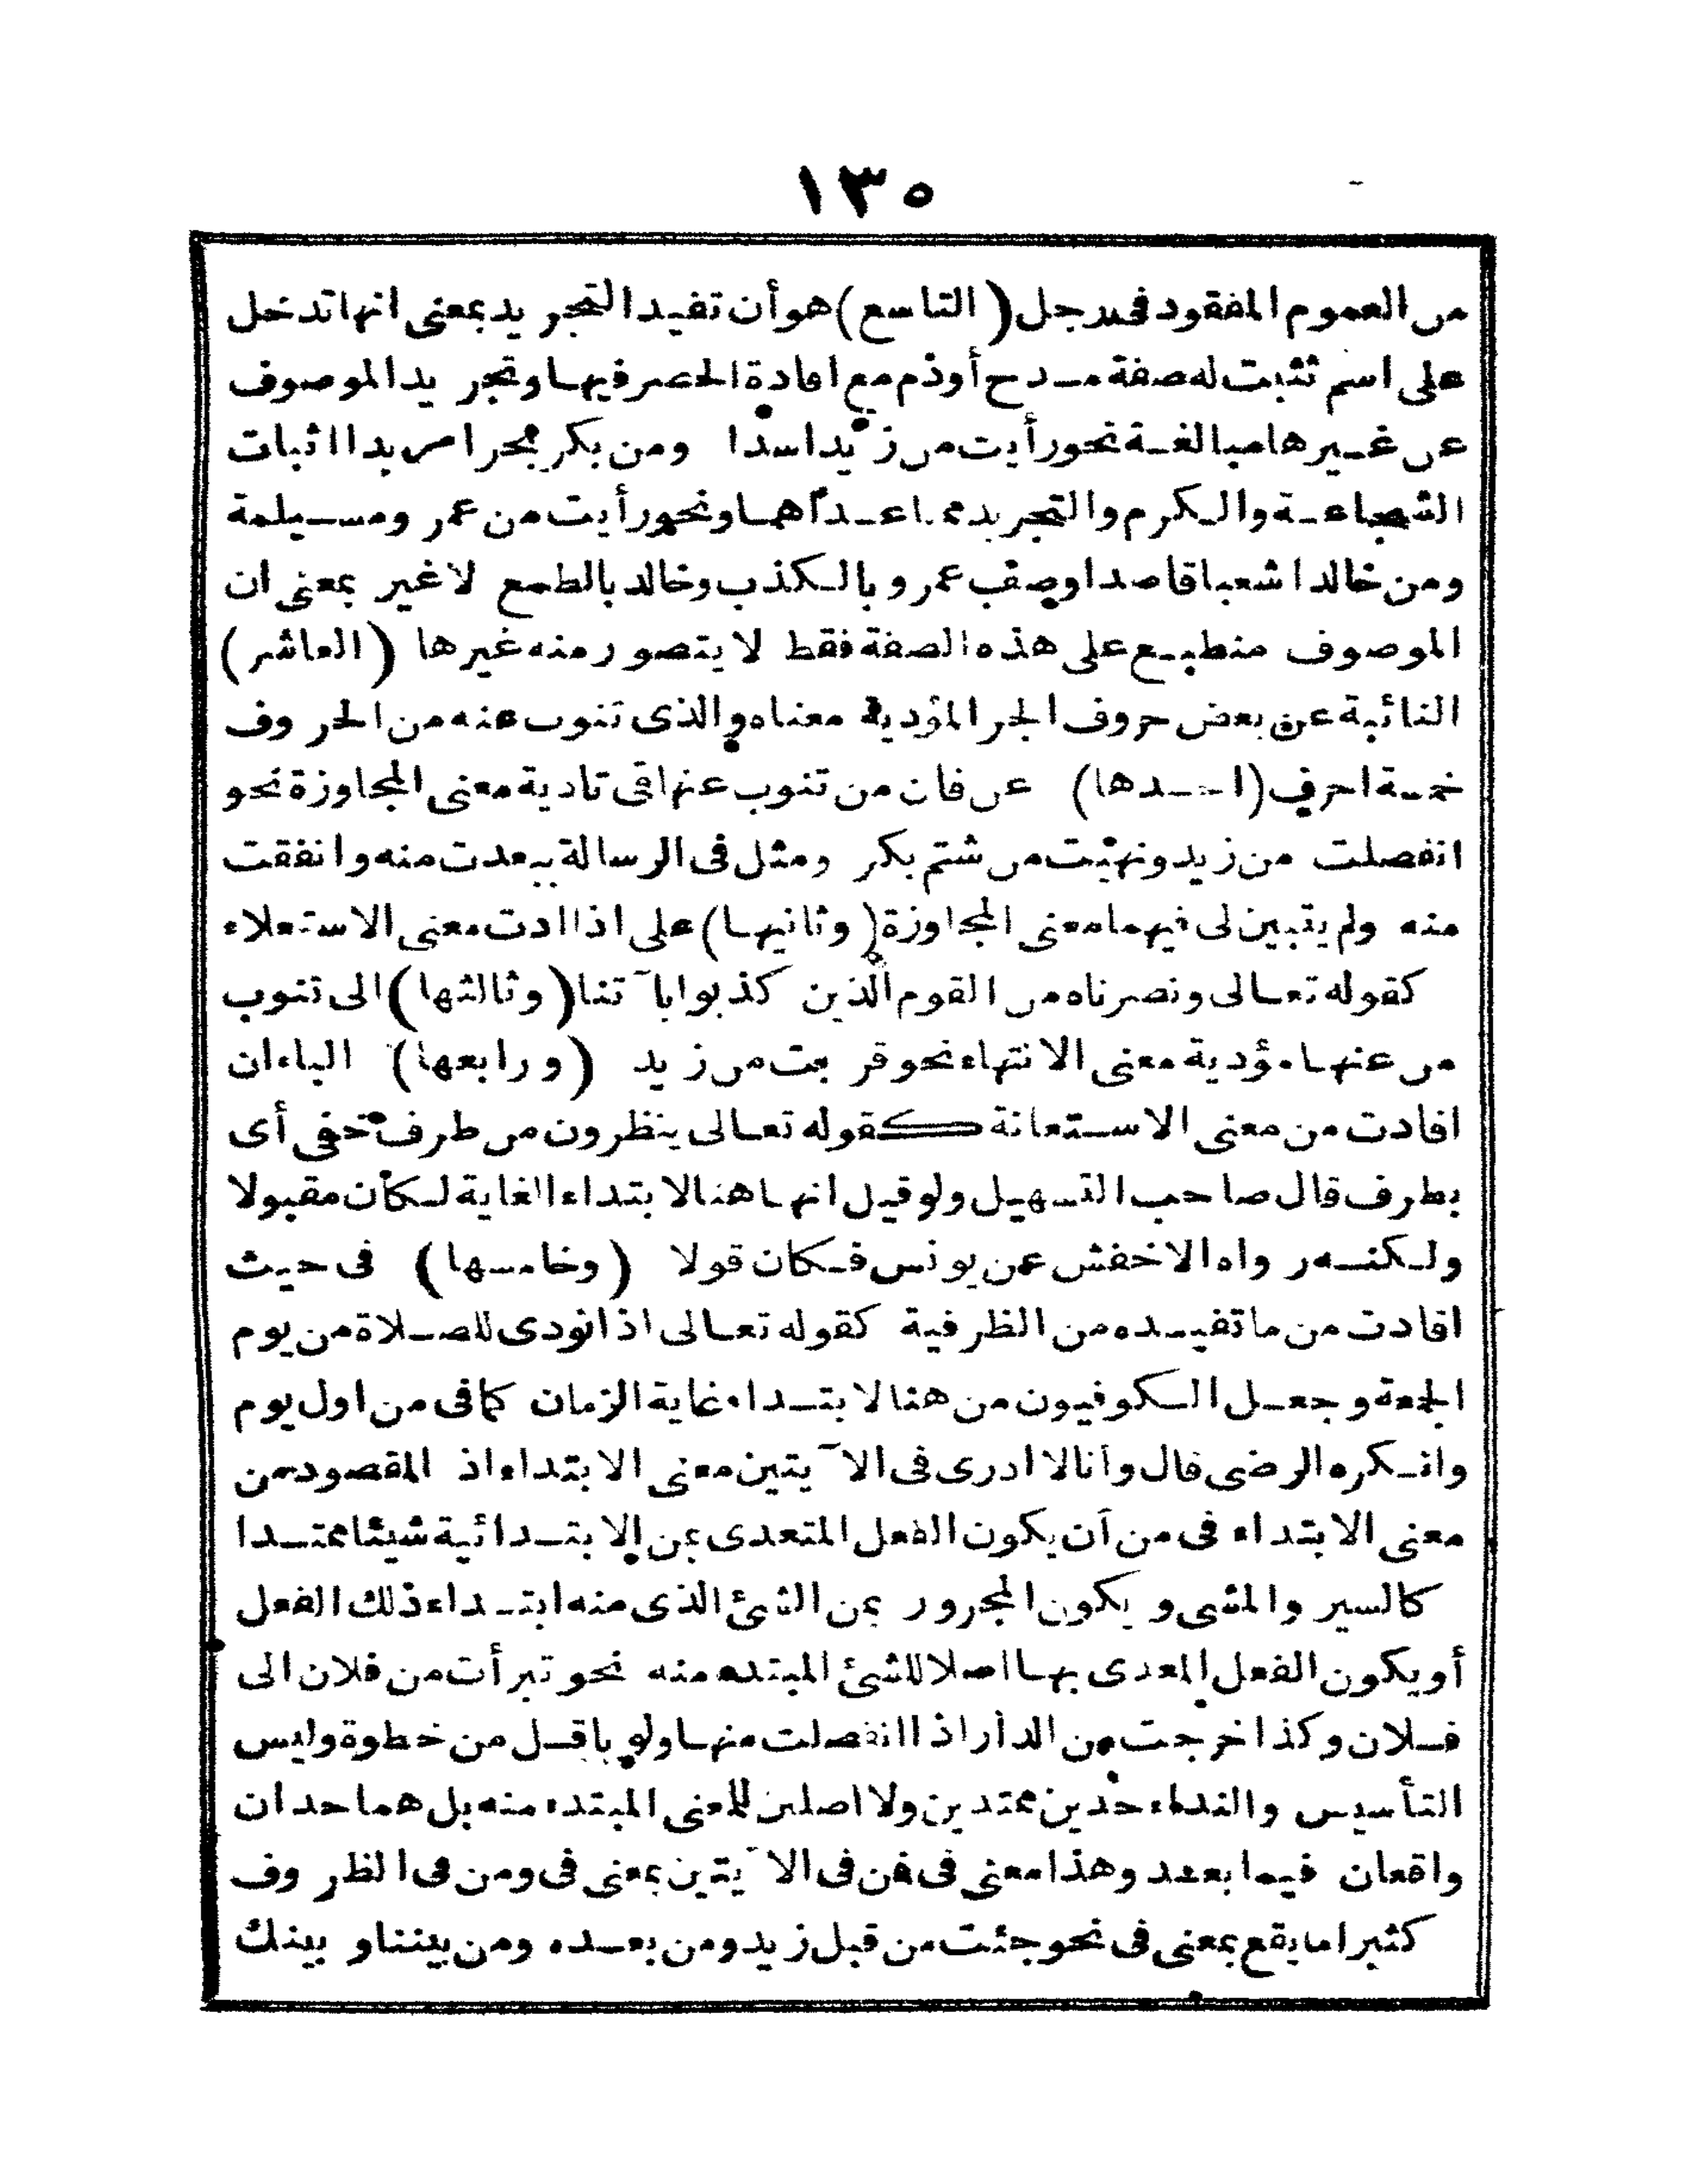 ١٣٥
من العموم المفقود في رجل (التاسع) هو أن تفيد التجريد بمعنى انها تدخل
على اسم تثبت له صفة مدح أو ذم مع افادة الحصر فيها وتجريد الموصوف
عن غيرها مبالغة نحو رأيت من زيد اسدا ومن بكر بحرا مريدا اثبات
الشجاعة والكرم والتجريد مما عداهما ونحو رأيت من عمر ومسيلمة
ومن خالد اشعبا قاصدا وصف عمرو بالكذب وخالد بالطمع لا غير بمعنى ان
الموصوف منطبع على هذه الصفة فقط لا يتصور منه غيرها (العاشر)
النائبة عن بعض حروف الجر المؤدية معناه والذى تنوب عنه من الحروف
خمسة احرف (احدها) عن فان من تنوب عنها فى تادية معنى المجاوزة نحو
انفصلت من زيد ونهيت من شتم بكر ومثل فى الرسالة ببعدت منه وانفقت
منه ولم يتبين لى فيهما معنى المجاوزة (وثانيها) على اذا ادت معنى الاستعلاء
كقوله تعالى ونصرناه من القوم الذين كذبوا باآتنا (وثالثها) الى تنوب
من عنها مؤدية معنى الانتهاء نحو قربت من زيد (ورابعها) الباء ان
افادت من معنى الاستعانة كقوله تعالى ينظرون من طرف خفى أى
بطرف قال صاحب التسهيل ولو قيل انها هنا لابتداء الغاية لكان مقبولا
ولكنه رواه الاخفش عن يونس فكان قولا (وخامسها) فى حيث
افادت من ما تفيده من الظرفية كقوله تعالى اذا نودى للصلاة من يوم
الجمعة وجعل الكوفيون من هنا لابتداء غاية الزمان كما فى من اول يوم
وانكره الرضى قال وأنا لا ادرى فى الآيتين معنى الابتداء اذ المقصود من
معنى الابتداء فى من أن يكون الفعل المتعدى بمن الابتدائية شيئا ممتدا
كالسير والمشى ويكون المجرور بمن الشئ الذى منه ابتداء ذلك الفعل
أو يكون الفعل المعدى بها اصلا للشئ المبتدء منه نحو تبرأت من فلان الى
فلان وكذا خرجت من الدار اذا انفصلت منها ولو باقل من خطوة وليس
التأسيس والنداء حدثين ممتدين ولا اصلين للمعنى المبتدء منه بل هما حدثان
واقعان فيما بعد وهذا معنى فى فمن فى الآيتين بمعنى فى ومن فى الظروف
كثيرا ما يقع بمعنى فى نحو جئت من قبل زيد ومن بعده ومن بيننا وبينك